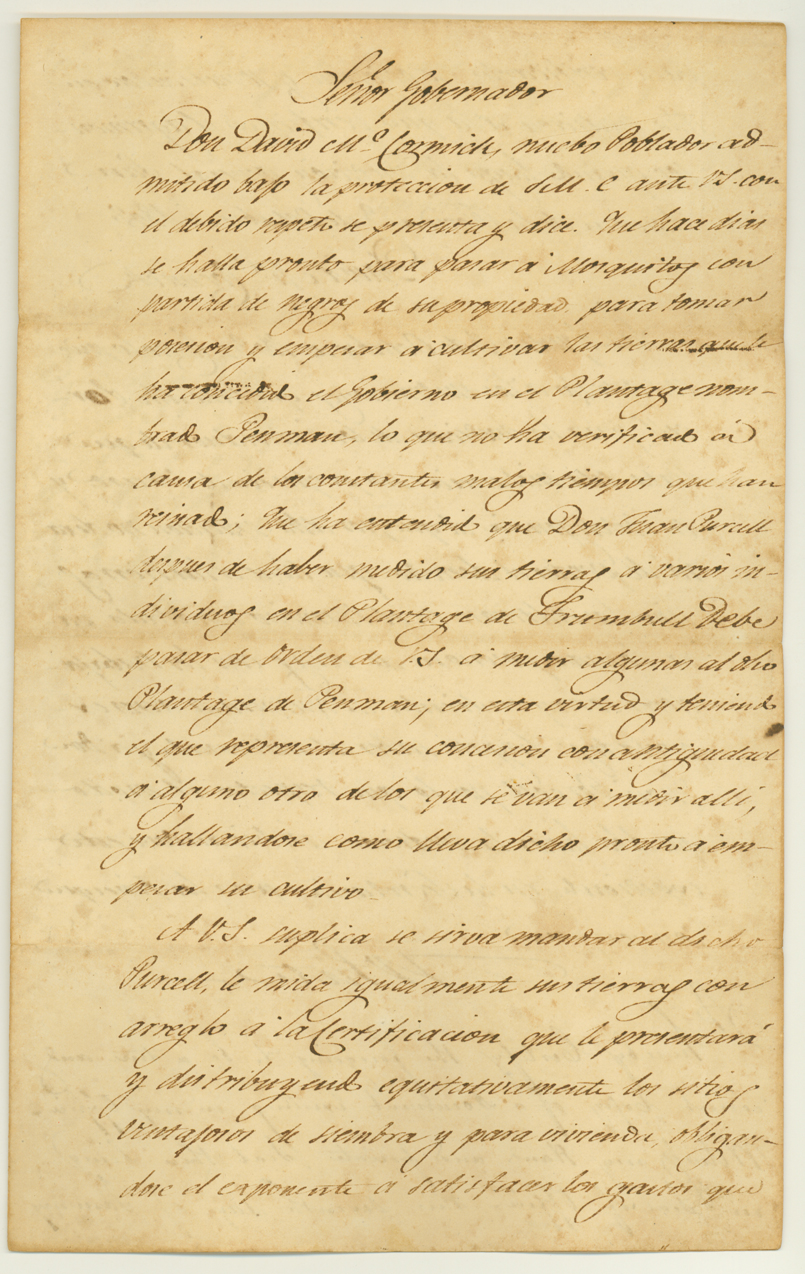 Señor Gobernador
Don David Mc. Cormick, nuebo Poblador ad-
mitido bajo la proteccion de S.M. C ante V.S. con
el debido repeto se presenta y dice. Que hace dias
se halla pronto para pasar á Mosquitos con
partida de negros de su propiedad para tomar
posesion y empesar á cultivar las tierras que le
ha concedido el Gobierno en el Plantage nom-
brado Penman, lo que no ha verificado á
causa de los constantes malos tiempos que han
reinado; Que ha entendido que Don Juan Purcell
despues de haber medido sus tierras á varios in-
dividuos en el Plantage de Trumbull Debe
pasar de orden de V.S. á medir algunas al dho
Plantage de Penman; en esta virtud y teniendo
el que representa su concesion con antiguedad
á alguno otro de los que se van á medir alli,
y hallandose como lleva dicho pronto á em-
pesar su cultivo
A V.S. suplica se sirva mandar al dicho
Purcell, le mida igualmente sus tierras con
arreglo á la Certificacion que le presentará
y distribuyendo equitativamente los sitios
ventajosos de siembra y para vivienda, obligan-
dose el exponente á satisfacer los gastos que